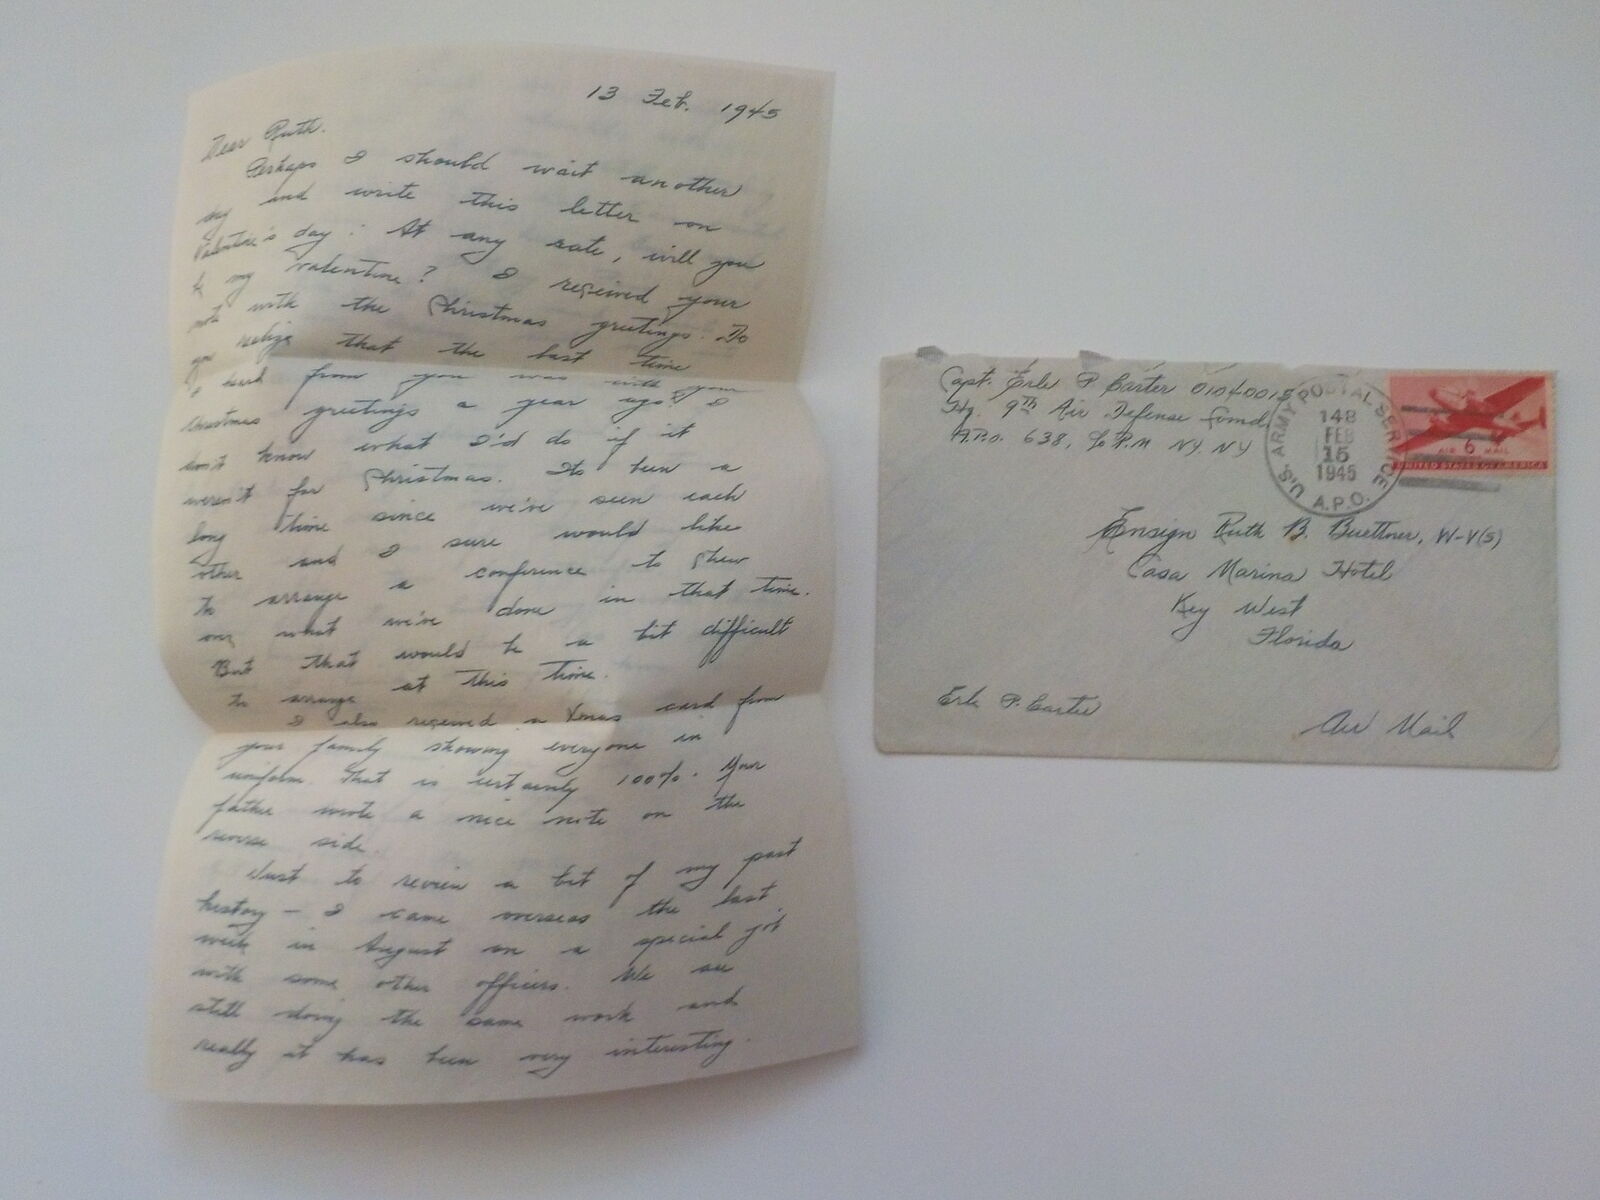 13 Feb. 1945
Dear Ruth.
Perhaps I should wait another
day and write this letter on
Valentine's day. At any rate, will you
be my valentine? I received your
note with the Christmas greetings. Do
you realize that the last time
I heard from you was with your
Christmas greetings a year ago? I
don't know what I'd do if it
weren't for Christmas. Its been a
long time since we've seen each
other and I sure would like
to arrange a conference to chew
over what we've done in that time.
But that would be a bit difficult
to arrange at this time.
I also received a Xmas card from
your family showing everyone in
uniform. That is certainly 100%. Your
father wrote a nice note on the
reverse side.
Just to review a bit of my past
history - I came overseas the last
week in August on a special job
with some other officers. We are
still doing the same work and
really it has been very interesting.
Capt. Erle P. Carter 01040015
Hq. 9th Air Defense Comd.
A.P.O. 638, % P.M. NY. NY
U.S. ARMY POSTAL SERVICE
148
FEB
15
1945
A.P.O.
6
AIR MAIL
UNITED STATES OF AMERICA
Ensign Ruth B. Buettner, W-V(S)
Casa Marina Hotel
Key West
Florida
Erle P. Carter
Air Mail